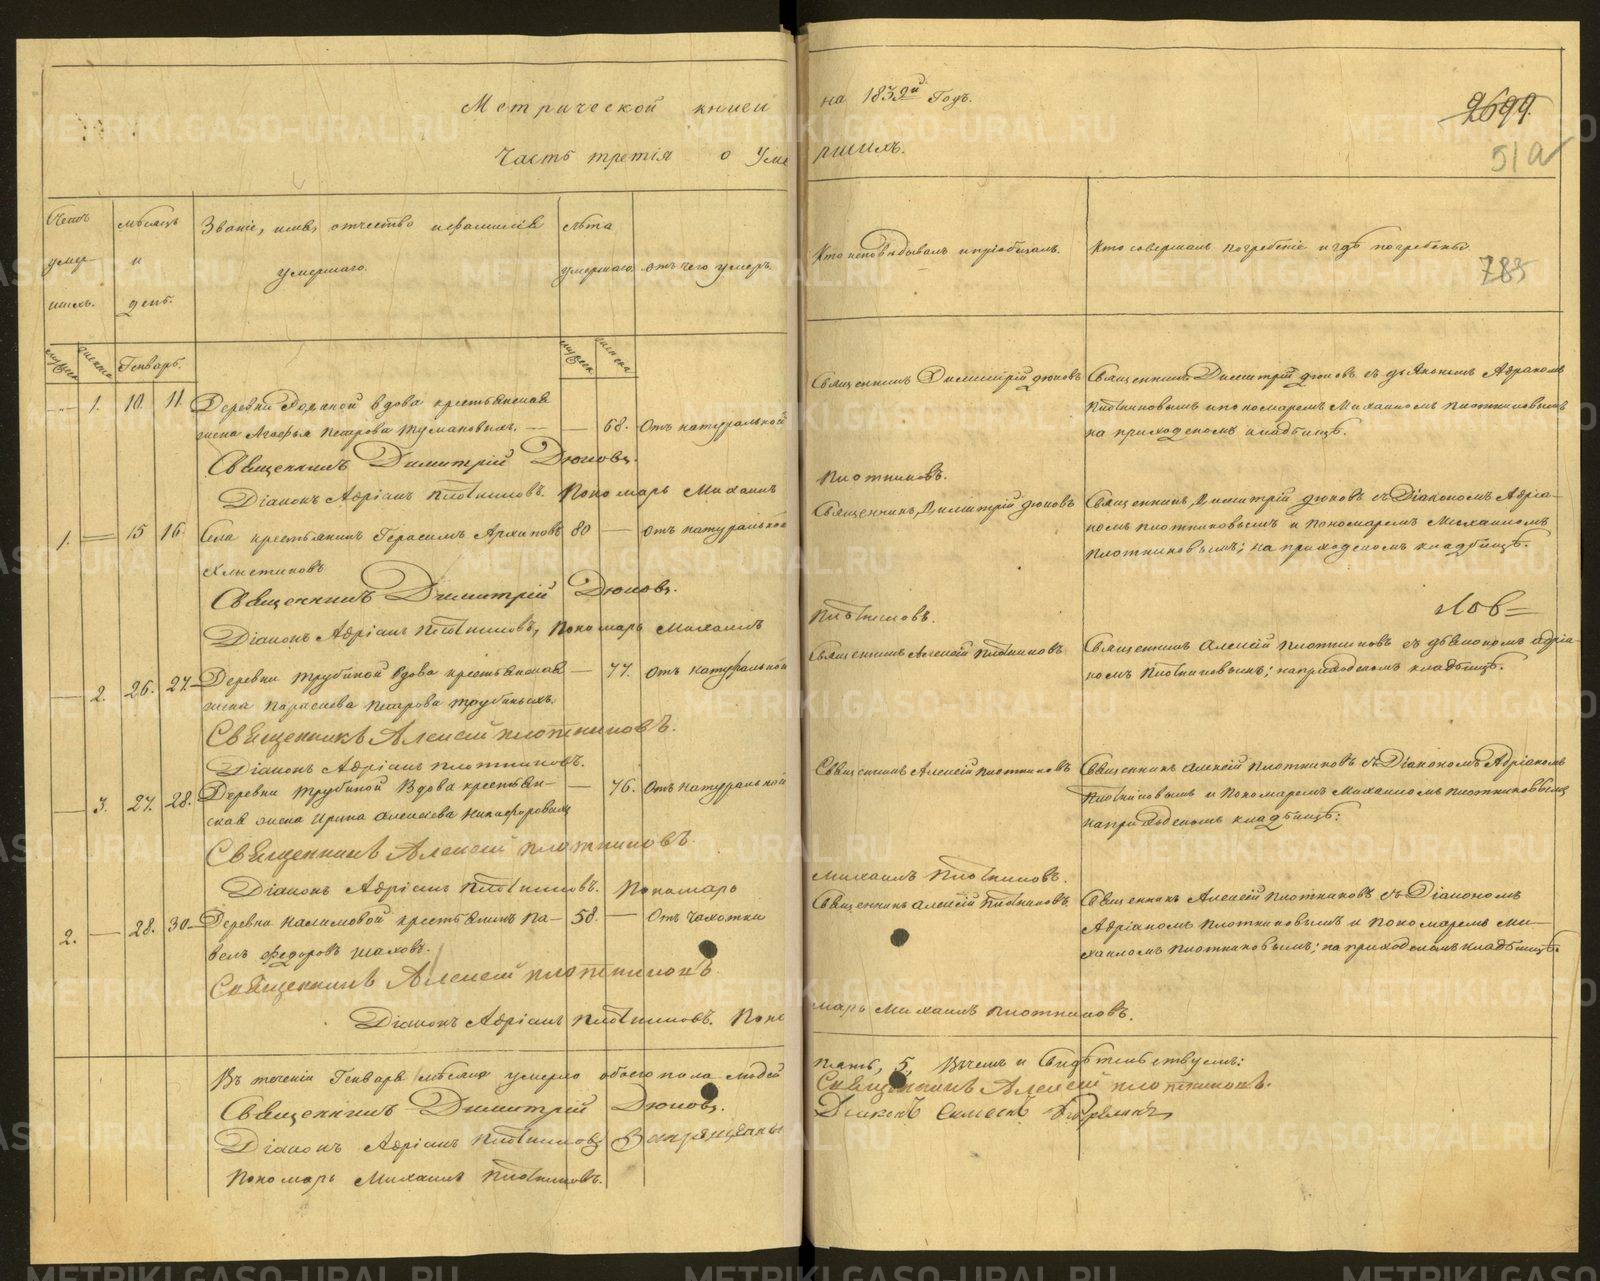 Метрической книги на 1832й Годъ.
Часть третія о Умершихъ.
2699
51а
785
Счетъ умершихъ.
мѣсяцъ и день.
Званіе, имя, отчество и фамилія умершаго.
лѣта умершаго
отъ чего умеръ.
Кто исповѣдывалъ и пріобщалъ.
Кто совершалъ погребеніе и гдѣ погребены.
Генварь.
1. 10. 11. Деревни вдова крестьянская
жена Агафья Петрова Тумановыхъ. — — 68. Отъ натуральной
Священникъ Димитрій Дюковъ
Священникъ Димитрій Дюковъ съ діакономъ Адріаномъ
Плотниковымъ и пономаремъ Михаиломъ Плотниковымъ
на приходскомъ кладбищѣ.
Священникъ Димитрій Дюковъ.
Діаконъ Адріанъ Плотниковъ. Пономарь Михаилъ Плотниковъ.
1. — 15 16. Села крестьянинъ Герасимъ Архиповъ 80 — отъ натуральной
Хлыстиковъ
Священникъ Димитрій Дюковъ
Священникъ Димитрій Дюковъ съ Діакономъ Адріа-
номъ Плотниковымъ и Пономаремъ Михаиломъ
Плотниковымъ; на приходскомъ кладбищѣ.
Священникъ Димитрій Дюковъ.
Діаконъ Адріанъ Плотниковъ, Пономарь Михаилъ Плотниковъ.
— 2. 26. 27. Деревни Трубиной вдова крестьянская — 77. Отъ натуральной
жена Параскева Петрова Трубиныхъ.
Священникъ Алексій Плотниковъ
Священникъ Алексій Плотниковъ съ діакономъ Адріа-
номъ Плотниковымъ; на приходскомъ кладбищѣ.
Священникъ Алексій Плотниковъ.
Діаконъ Адріанъ Плотниковъ.
— 3. 27. 28. Деревни Трубиной Вдова крестьян- — 76. Отъ натуральной
ская жена Ирина Алексѣева Никифоровыхъ
Священникъ Алексій Плотниковъ
Священникъ Алексій Плотниковъ съ Діакономъ Адріаномъ
Плотниковымъ и Пономаремъ Михаиломъ Плотниковымъ
на приходскомъ кладбищѣ:
Священникъ Алексій Плотниковъ.
Діаконъ Адріанъ Плотниковъ. Пономарь Михаилъ Плотниковъ.
2. — 28. 30. Деревни Налимовой крестьянинъ Па- 58. — Отъ чахотки
велъ Федоровъ Шаховъ.
Священникъ Алексій Плотниковъ
Священникъ Алексій Плотниковъ съ Діакономъ
Адріаномъ Плотниковымъ и Пономаремъ Ми-
хаиломъ Плотниковымъ; на приходскомъ кладбищѣ.
Священникъ Алексій Плотниковъ
Діаконъ Адріанъ Плотниковъ. Пономарь Михаилъ Плотниковъ.
Въ теченіи Генваря мѣсяца умерло обоего пола людей пять, 5, Въ чемъ и Свидѣтельствуемъ:
Священникъ Димитрій Дюковъ. Священникъ Алексій Плотниковъ.
Діаконъ Адріанъ Плотниковъ
Пономарь Михаилъ Плотниковъ.
METRIKI.GASO-URAL.RU